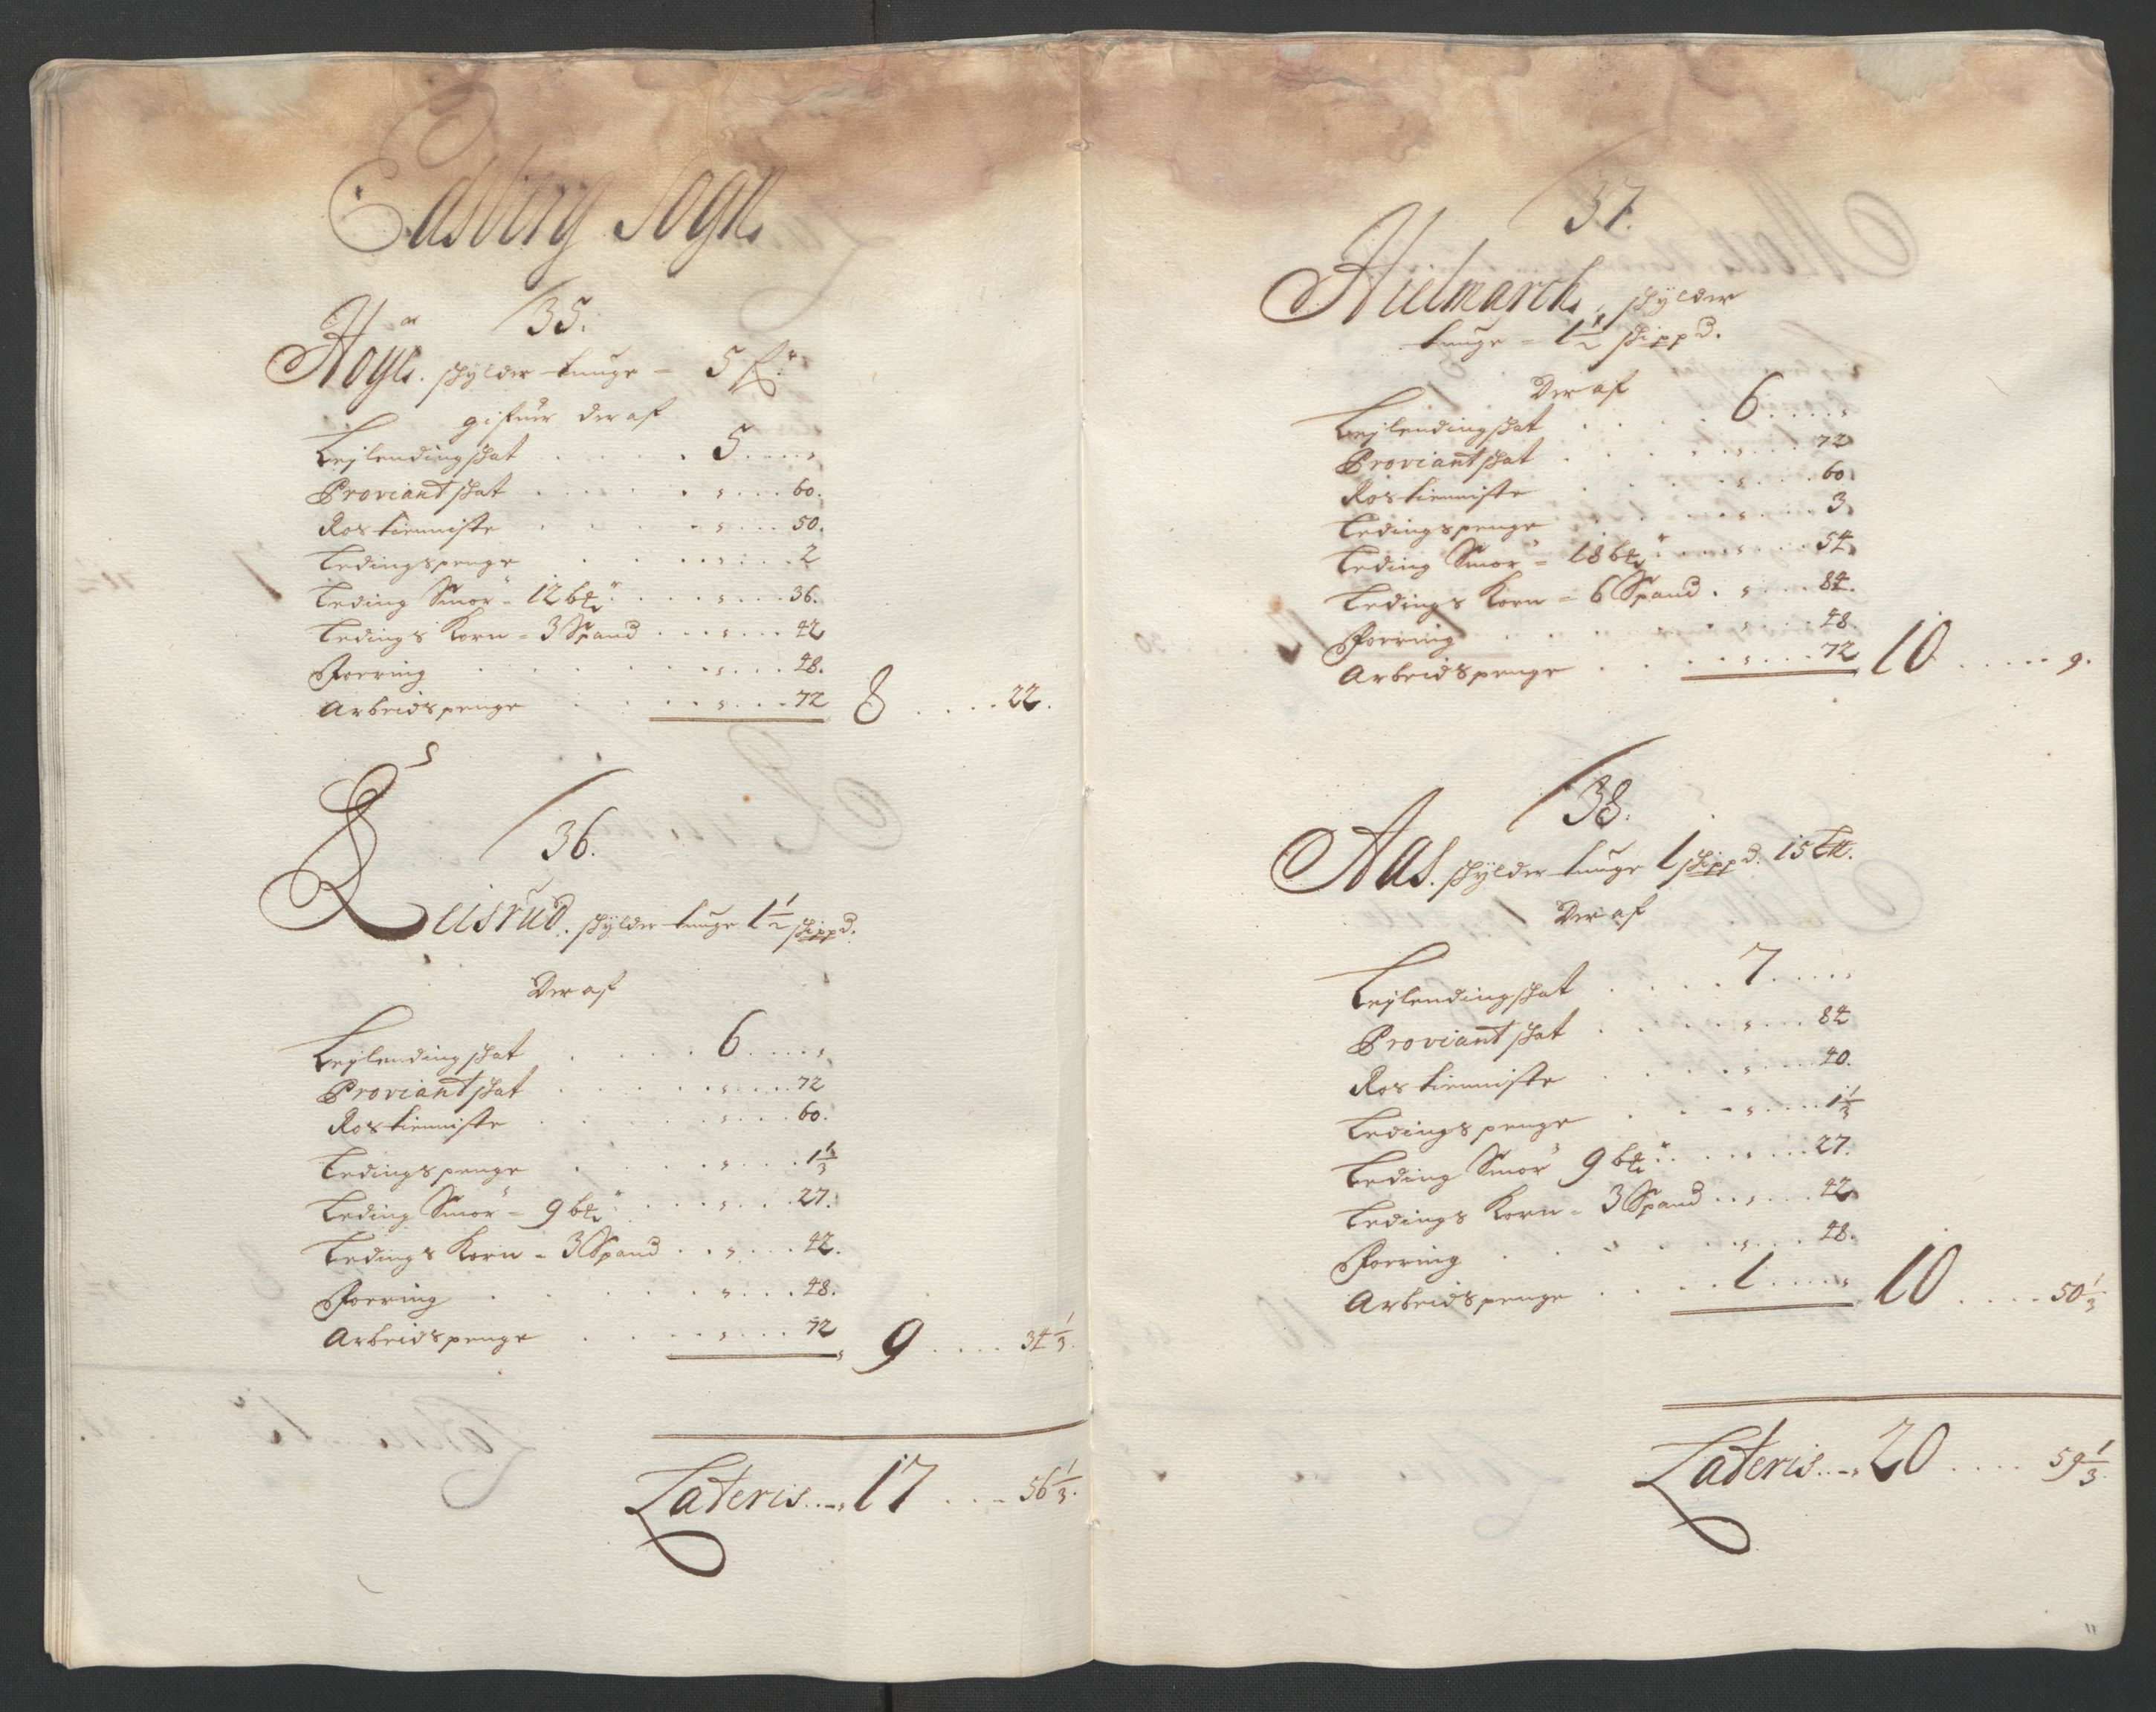 Edsberg Sogn
35.
Høye. skylder tunge - 5 ſtr:
gifuer der af
Leylendingskat . . . . . 5 . . . . „
Proviant skat . . . . . „ . . . 60.
Ros tienniste . . . . . „ . . . 50.
Ledingspenge . . . . . „ . . . 2
Leding Smør - 12 btr . . . . „ . . . 36.
Ledings Korn - 3 Spand . . . „ . . . 42
Foering . . . . . „ . . . 48.
Arbeidspenge . . . . . „ . . . 72 8 . . . . 22.
36.
Leisrud. skylder tunge 1 1/2 skippd.
Der af
Leylendingskat . . . . . 6 . . . . „
Proviant skat . . . . . „ . . . 72
Ros tienniste . . . . . „ . . . 60.
Ledingspenge . . . . . „ . . . 1 1/3
Leding Smør - 9 btr . . . . „ . . . 27.
Ledings Korn - 3 Spand . . „ . . . 42.
Foering . . . . . „ . . . 48.
Arbeidspenge . . . . . „ . . . 72 9 . . . . 34 1/3.
Lateris . . . 17 . . . 56 1/3.
37.
Hielmarck, skylder
tunge - 1 1/2 skippd.
Der af
Leylendingskat . . . . . 6 . . . . „
Proviant skat . . . . . „ . . . 72
Ros tienniste . . . . . „ . . . 60
Ledingspenge . . . . . „ . . . 3
Leding Smør - 18 btr . . . . „ . . . 54
Ledings Korn - 6 Spand . „ . . . 84.
Foering . . . . . „ . . . 48.
Arbeidspenge . . . . . „ . . . 72 10 . . . . . 9.
38.
Aas. skylder tunge 1 skippd. 15 L℔.
Der af
Leylendingskat . . . . . 7 . . . . „
Proviant skat . . . . . „ . . . 84
Ros tienniste . . . . . „ . . . 40.
Ledingspenge . . . . . „ . . . 1 1/3
Leding Smør 9 btr . . . . „ . . . 27.
Ledings Korn - 3 Spand . . „ . . . 42
Foering . . . . . „ . . . 48.
Arbeidspenge . . . . . 1 . . . . „ 10 . . . . 50 1/3
Lateris . . . 20 . . . . 59 1/3.